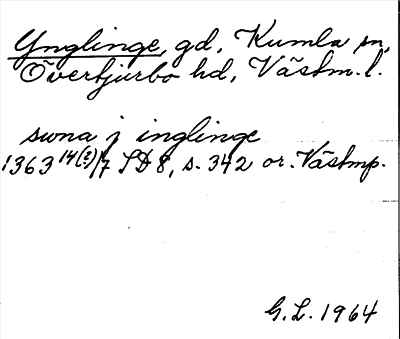 Ynglinge, gd, Kumla sn,
Övertjurbo hd, Västm. l.
swna j inglinge
1363 14(?)/7 SD 8, s. 342 or. Västmp.
G.L. 1964